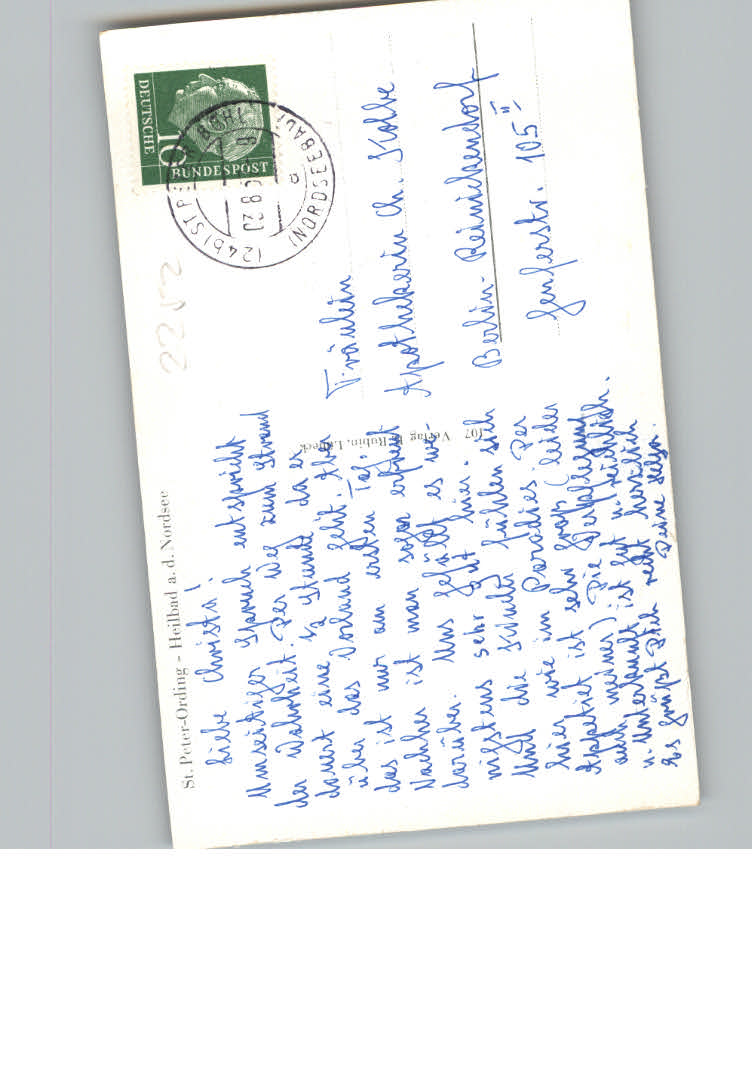 St. Peter-Ording - Heilbad a. d. Nordsee
Liebe Christa!
Umseitiger Spruch entspricht
der Wahrheit. Der Weg zum Strand
dauert eine 1/2 Stunde da es
über das Vorland geht. Aber
das ist nur am ersten Tag.
Nachher ist man sogar erfreut
darüber. Uns gefällt es we-
nigstens sehr gut hier.
Und die Kinder fühlen sich
hier wie im Paradies. Der
Appetiet ist sehr groß (leider
auch meiner) Die Verpflegung
u. Unterkunft ist gut u. reichlich.
Es grüßt Dich recht herzlich
Deine Helga.
107 Verlag Rubin, Lübeck
DEUTSCHE
10
BUNDESPOST
(24b) ST
(NORDSEEBAD)
a
2252
Fräulein
Apothekerin Ch. Kolbe
Berlin-Reinickendorf
Genferstr. 105 II